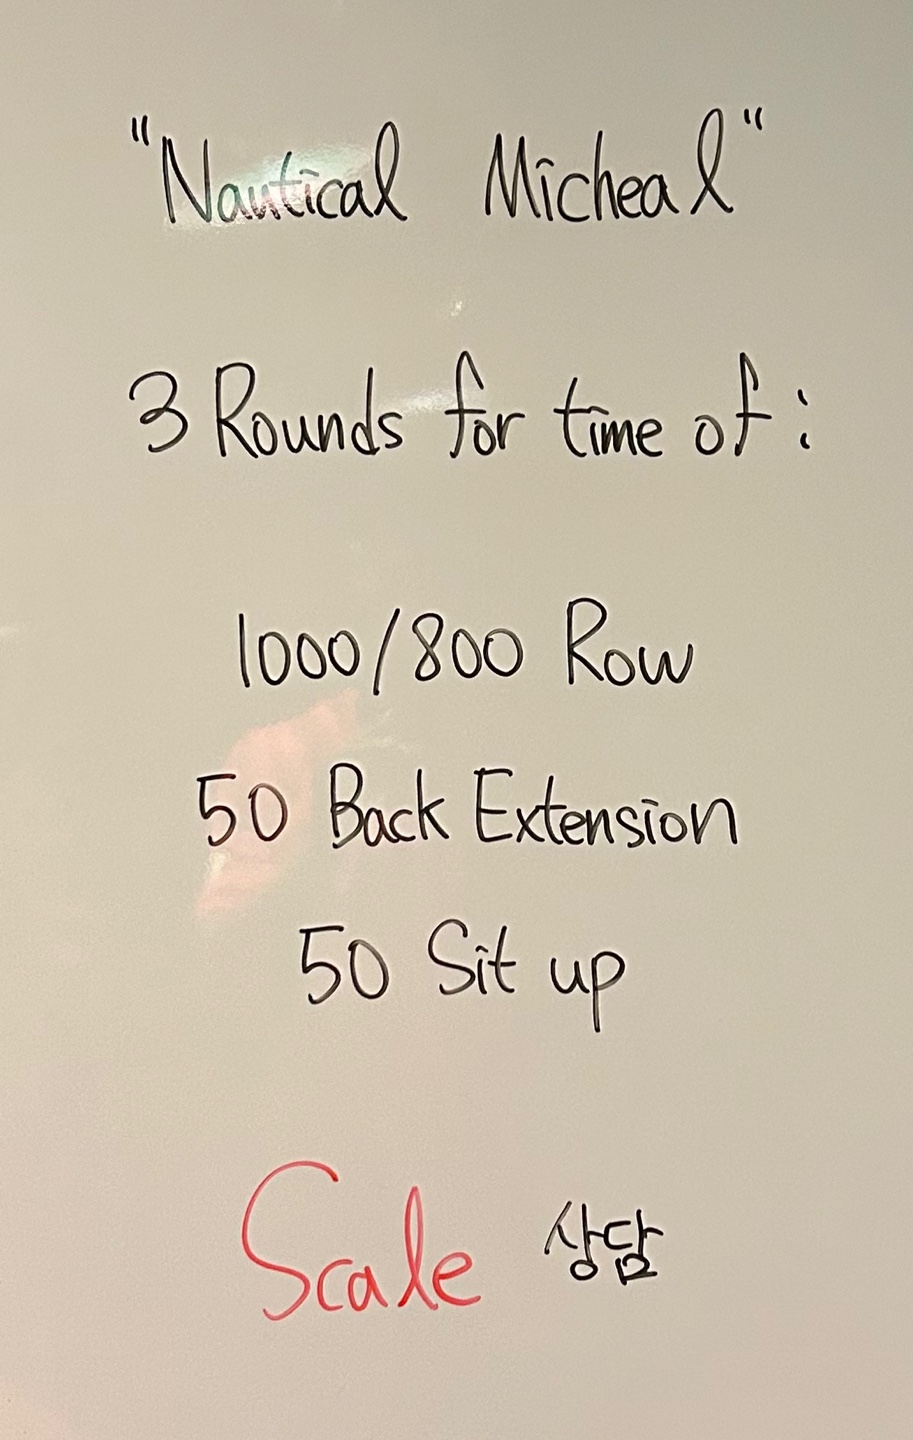 "Nautical Micheal"
3 Rounds for time of :
1000/800 Row
50 Back Extension
50 Sit up
Scale 상담